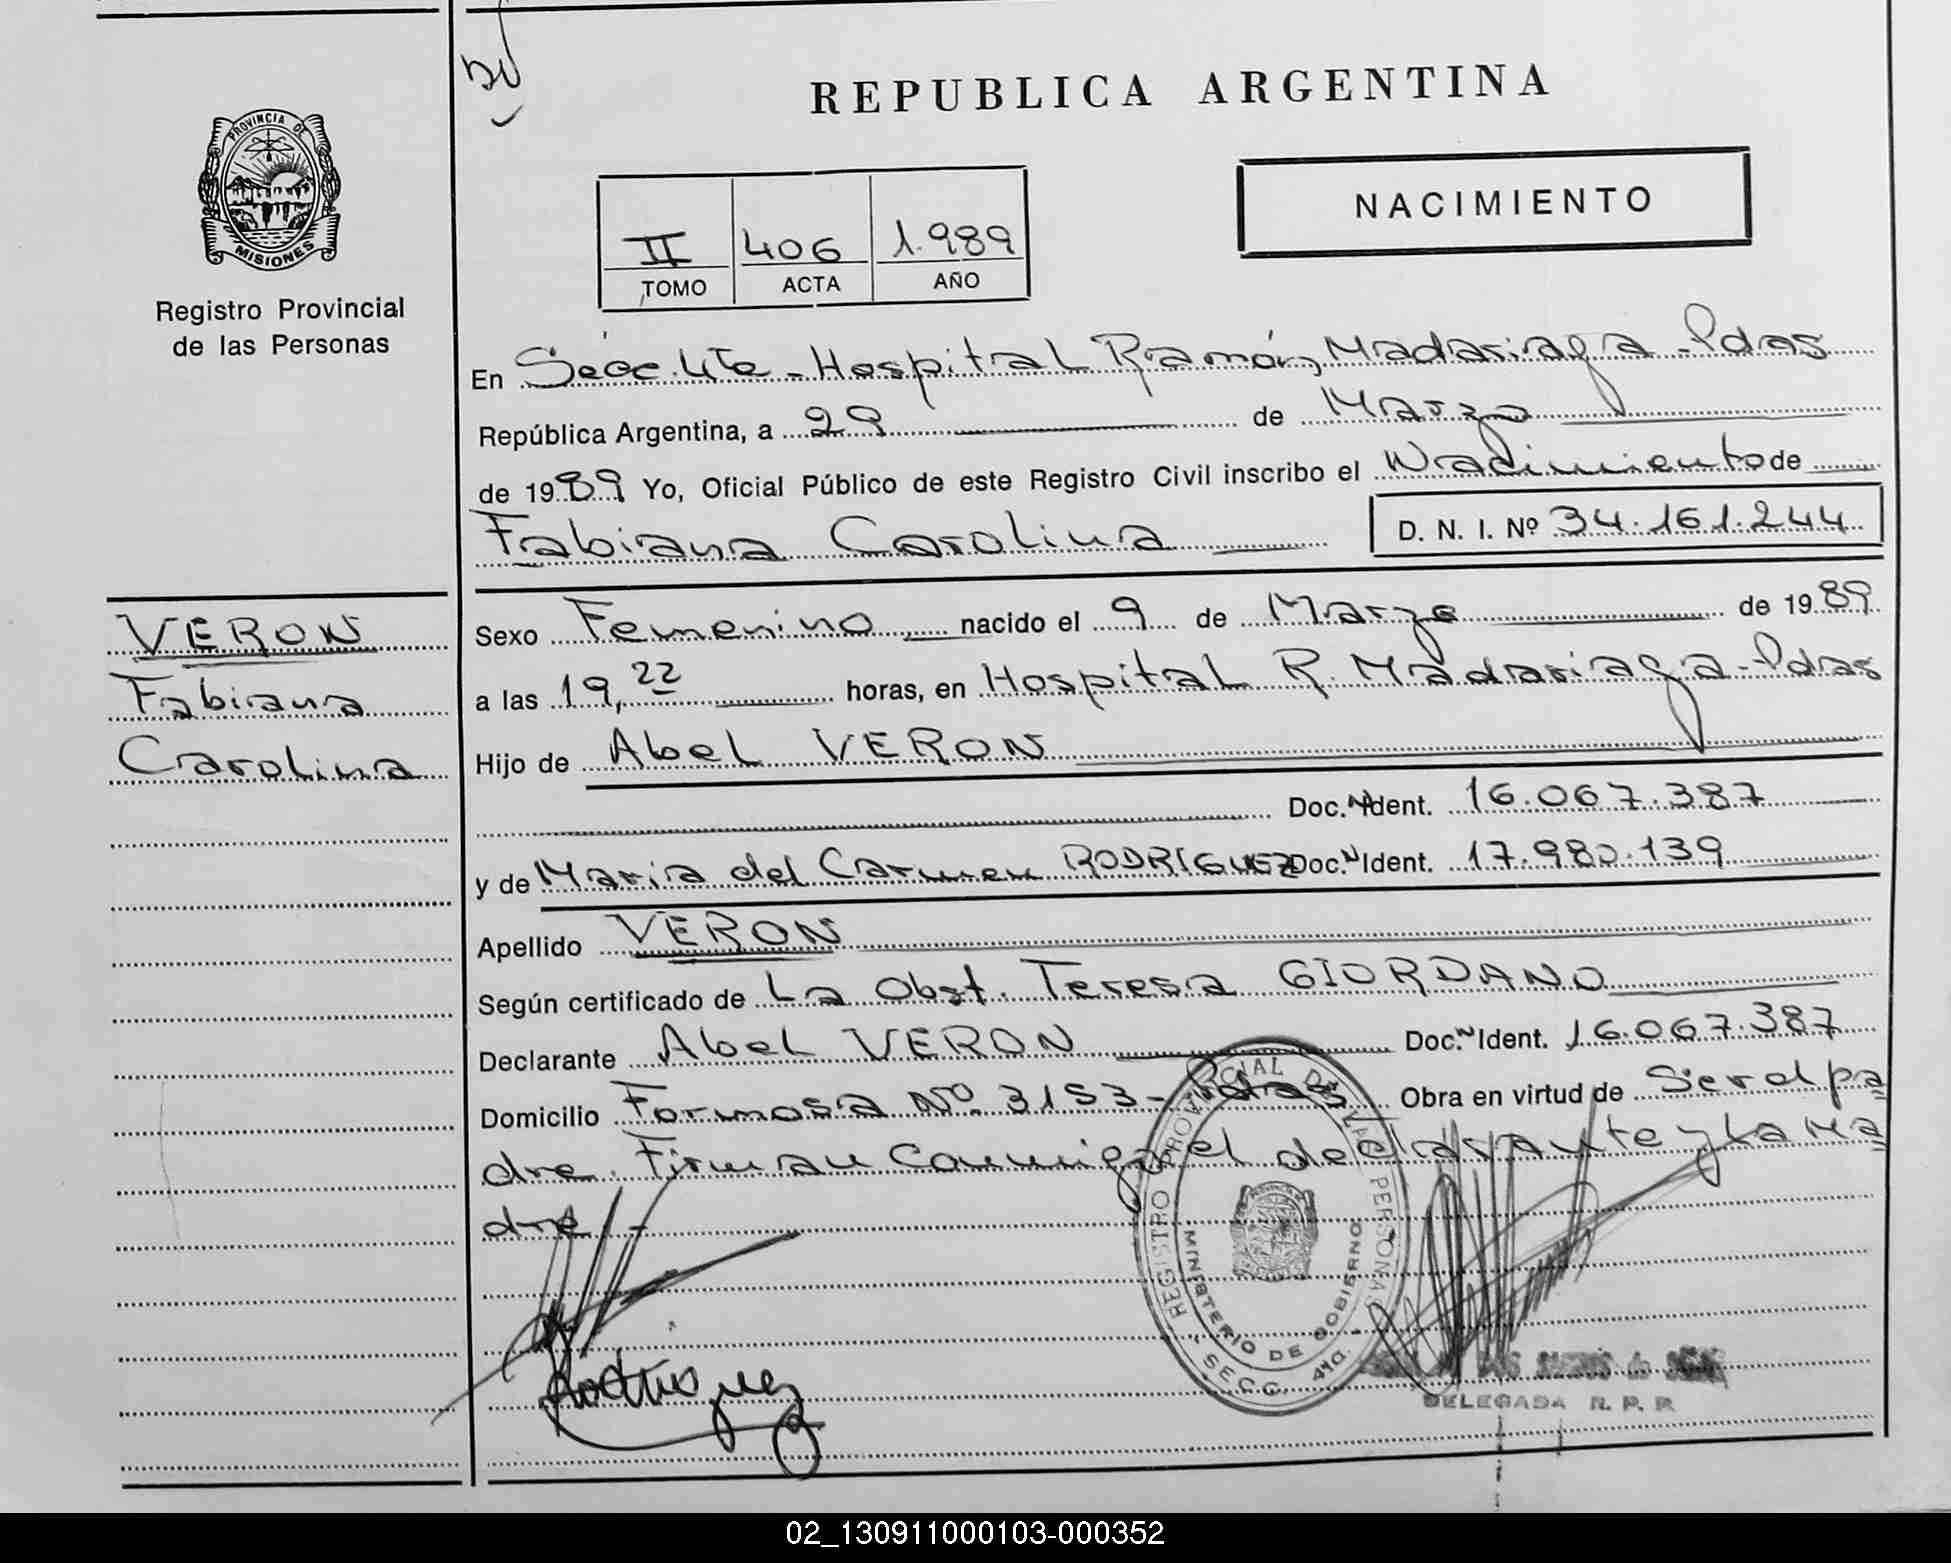 REPUBLICA ARGENTINA
NACIMIENTO
PROVINCIA DE
MISIONES
Registro Provincial
de las Personas
II 406 1.989
TOMO ACTA AÑO
En Secc. 4ta - Hospital Ramón Madariaga - Pdas
República Argentina, a 29 de Marzo
de 1989 Yo, Oficial Público de este Registro Civil inscribo el Nacimiento de
Fabiana Carolina D. N. I. Nº 34.161.244
VERON
Fabiana
Carolina
Sexo Femenino, nacido el 9 de Marzo de 1989
a las 19,22 horas, en Hospital R. Madariaga - Pdas
Hijo de Abel VERON
Doc. N Ident. 16.067.387
y de Maria del Carmen RODRIGUEZ Doc. N Ident. 17.980.139
Apellido VERON
Según certificado de La Obst. Teresa GIORDANO
Declarante Abel VERON Doc. N Ident. 16.067.387
Domicilio Formosa Nº 3153 - Pdas Obra en virtud de Ser el pa
dre. Firman conmigo el declarante y La Ma
dre.-
REGISTRO PROVINCIAL DE LAS PERSONAS
MINISTERIO DE GOBIERNO
SECC. 4TA.
Rodriguez
DELEGADA R. P. P.
02_130911000103-000352